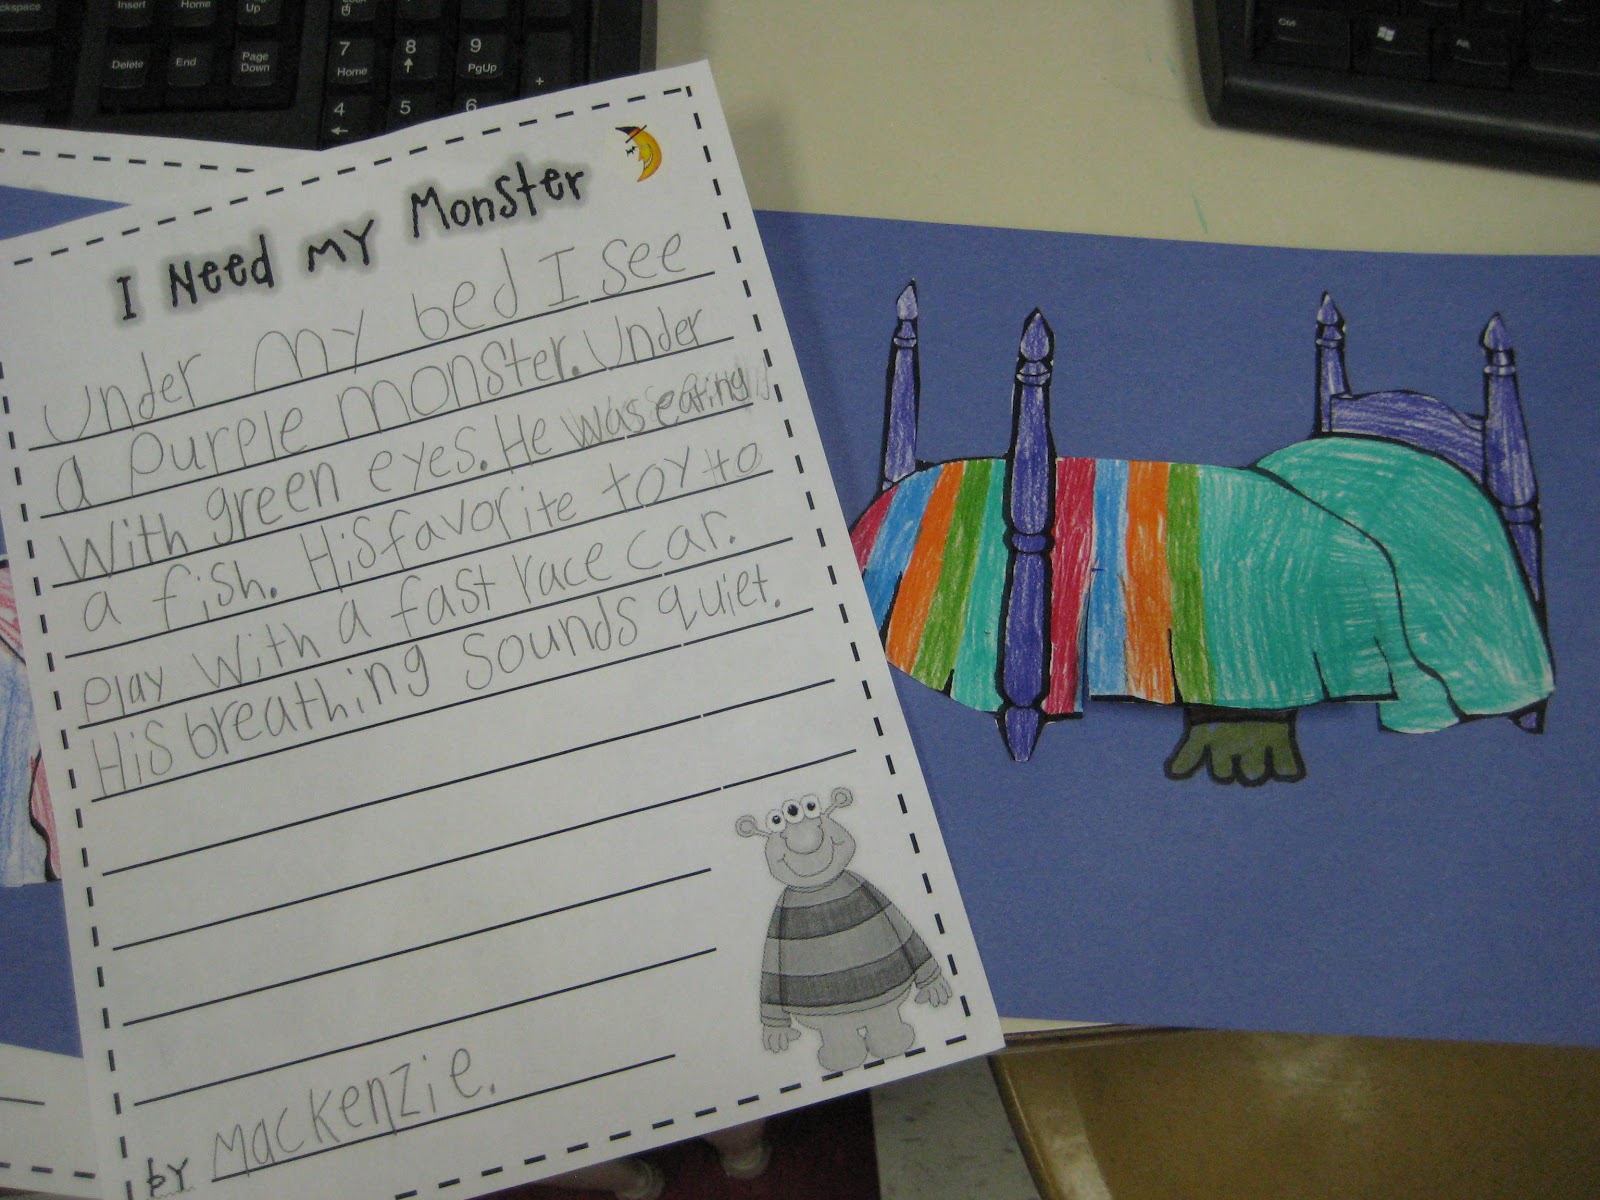 Backspace
Insert
Home
Page Up
Lock
Delete
End
Page Down
7 Home
8
9 PgUp
+
4
5
6
Ctrl
Alt
I Need my Monster
Under my bed I see
a purple monster. Under
with green eyes. He was eating
a fish. His favorite toy to
play with a fast race car.
His breathing sounds quiet.
by Mackenzie.